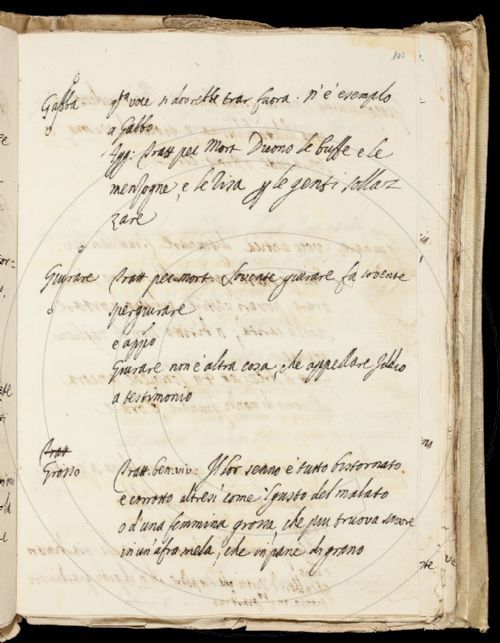 103
Gabba qta voce si dovrebbe trar fuora. N'è esempio
a Gabbo
Agg: Tratt pec Mort. Dicono le buffe e le
menzogne, e le risa le genti sollaz
zare
Giurare Tratt pec. mort. Sovente giurare fa sovente
spergiurare
e appò
Giurare non è altra cosa, che appellare Iddio
a testimonio
Tratt
Grosso Tratt. ben. viv: Il lor senno è tutto bistornato
e corrotto altresì come 'l gusto del malato
o d'una femmina grossa, che piu truova savore
in un afro mela, che in pane di grano